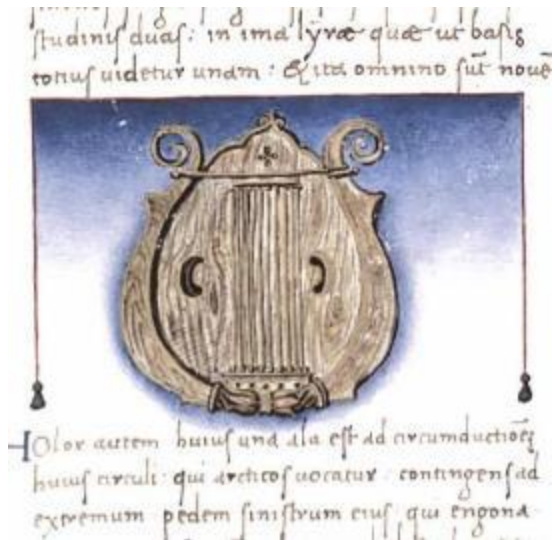 studinis duas: in ima lyræ quæ ut basis
totius uidetur unam: Et ita omnino sūt nouē
Olor autem huius una ala est ad circumductionē
huius circuli: qui arcticos uocatur contingens ad
extremum pedem sinistrum eius qui engona